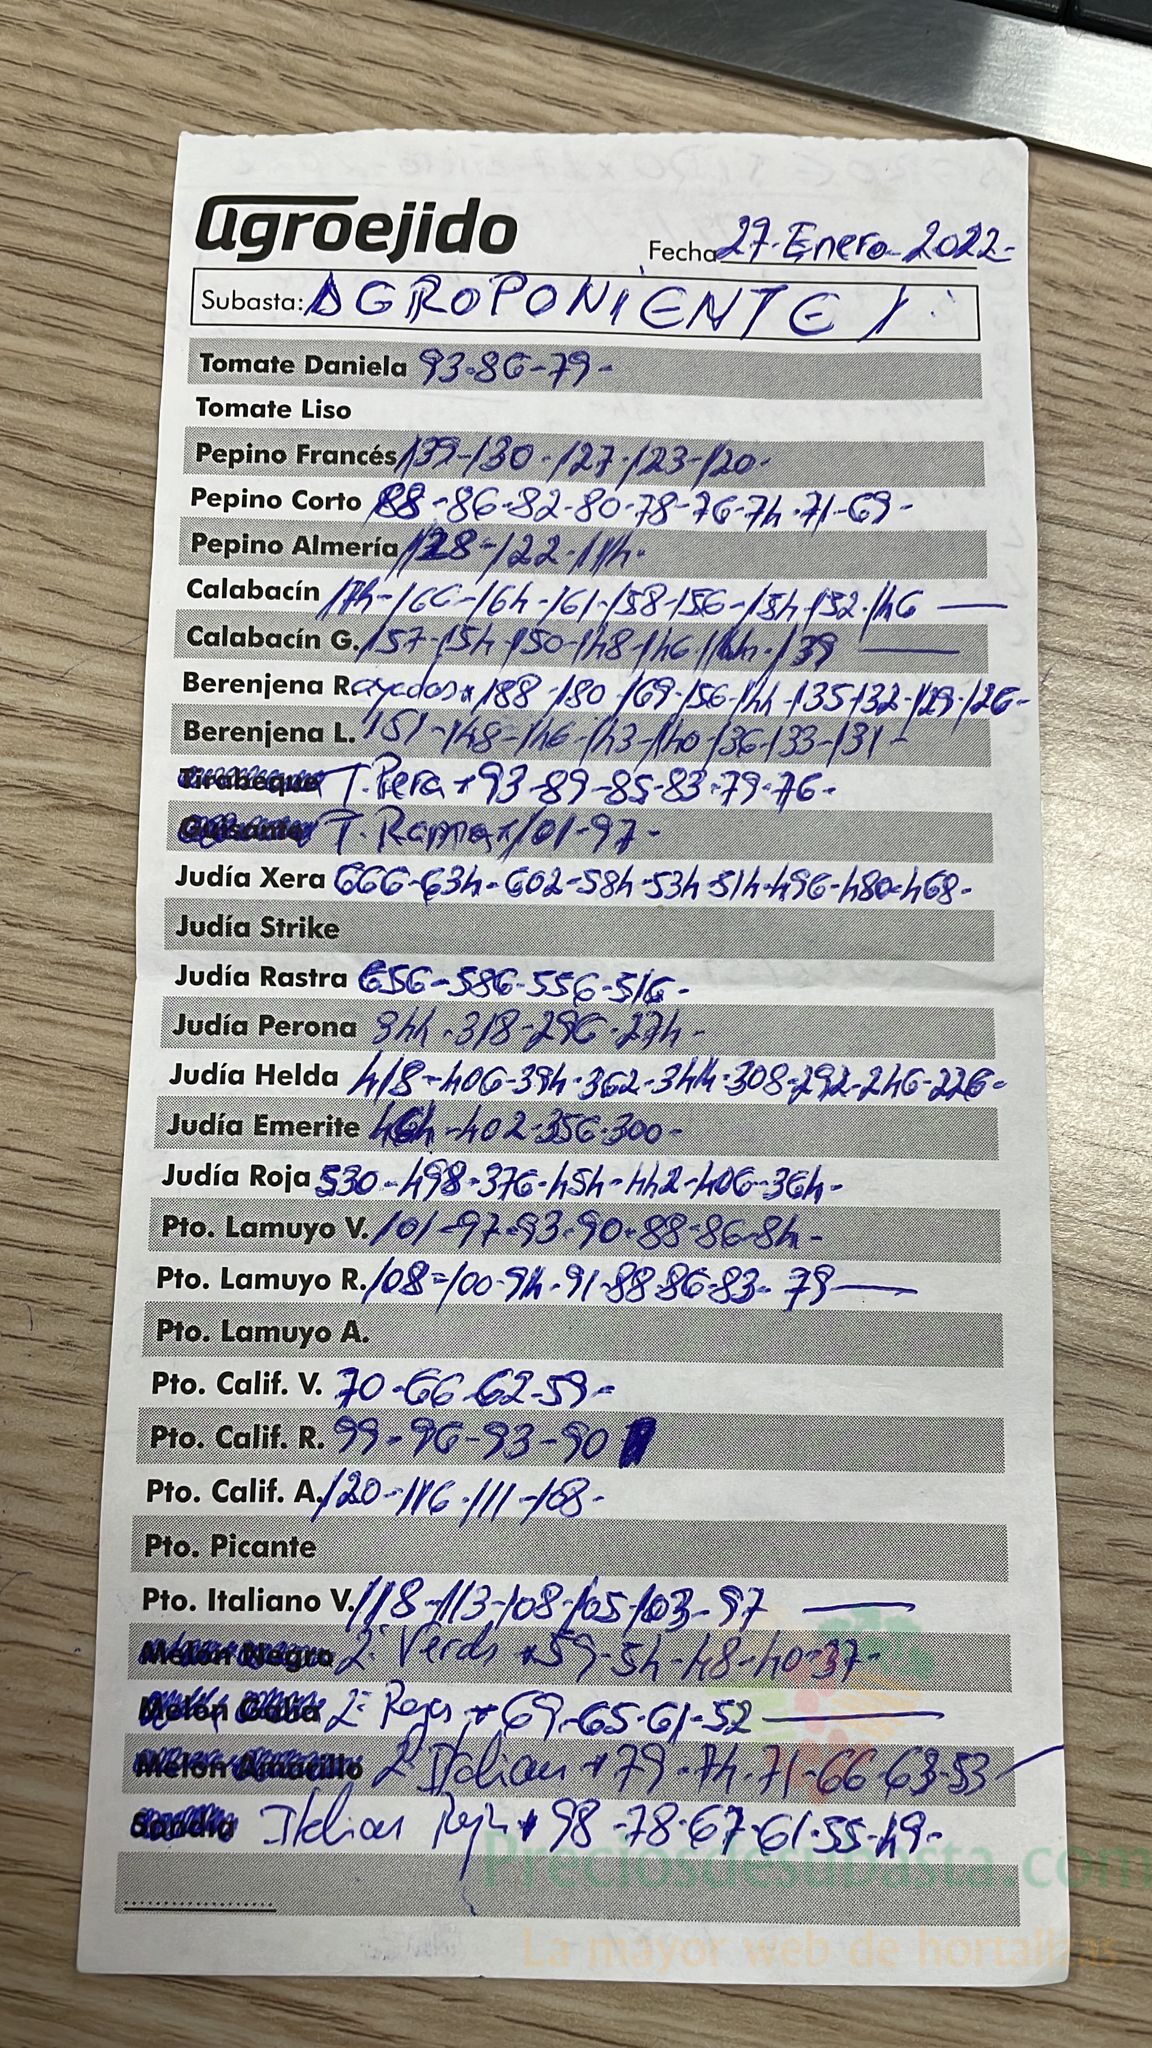 agroejido
Fecha 27-Enero-2022-
Subasta: AGROPONIENTE 1
Tomate Daniela 93-86-79-
Tomate Liso
Pepino Francés 139-130-127-123-120-
Pepino Corto 88-86-82-80-78-76-74-71-69-
Pepino Almería 128-122-114-
Calabacín 174-166-164-161-158-156-154-152-146
Calabacín G. 157-154-150-148-146-144-139
Berenjena Rayadas 188-180-169-156-144-135-132-129-126-
Berenjena L. 151-148-146-143-140-136-133-131-
Tirabeque T. Pera 93-89-85-83-79-76-
Guisante T. Rama 101-97-
Judía Xera 666-634-602-584-534-514-496-480-468-
Judía Strike
Judía Rastra 656-586-556-516-
Judía Perona 344-318-296-274-
Judía Helda 418-406-394-362-344-308-292-246-226-
Judía Emerite 464-402-356-300-
Judía Roja 530-498-376-454-442-406-364-
Pto. Lamuyo V. 101-97-93-90-88-86-84-
Pto. Lamuyo R. 108-100-94-91-88-86-83-79
Pto. Lamuyo A.
Pto. Calif. V. 70-66-62-59-
Pto. Calif. R. 99-96-93-90
Pto. Calif. A. 120-116-111-108-
Pto. Picante
Pto. Italiano V. 118-113-108-105-103-97
Melón Negro 2ª Verds 59-54-48-40-37-
Melón Galia 2ª Rojos 69-65-61-52
Melón Amarillo 2ª Italian 79-74-71-66-63-53-
Sandía Italian Rojo 98-78-67-61-55-49-
Preciosdesubasta.com
La mayor web de hortalizas